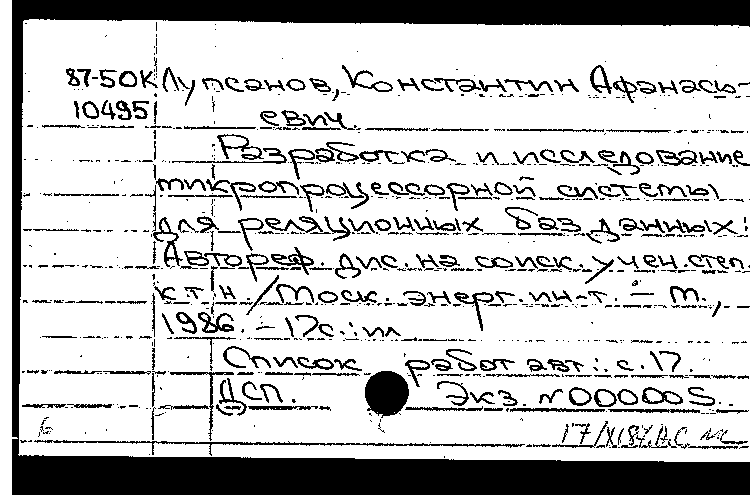 87-50К Лупсанов, Константин Афанась-
10495 евич.
Разработка и исследование
микропроцессорной системы
для реляционных баз данных:
Автореф. дис. на соиск. учен. степ.
к.т.н. / Моск. энерг. ин-т. – М.,
1986. – 17с.: ил
Список работ авт.: с. 17.
ДСП. Экз. N000005.
б